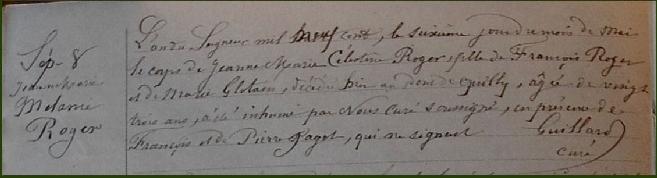 Sép. 8
Jeanne Marie
Mélanie
Roger
L'an du Seigneur mil neuf cent, le seizième jour du mois de mai
le corps de Jeanne Marie Célestine Roger, fille de François Roger
et de Marie décédée hier au de Quilly, âgée de vingt
trois ans, a été inhumé par Nous curé soussigné, en présence de
François et de Pierre Pagot, qui ne signent Guillard
curé